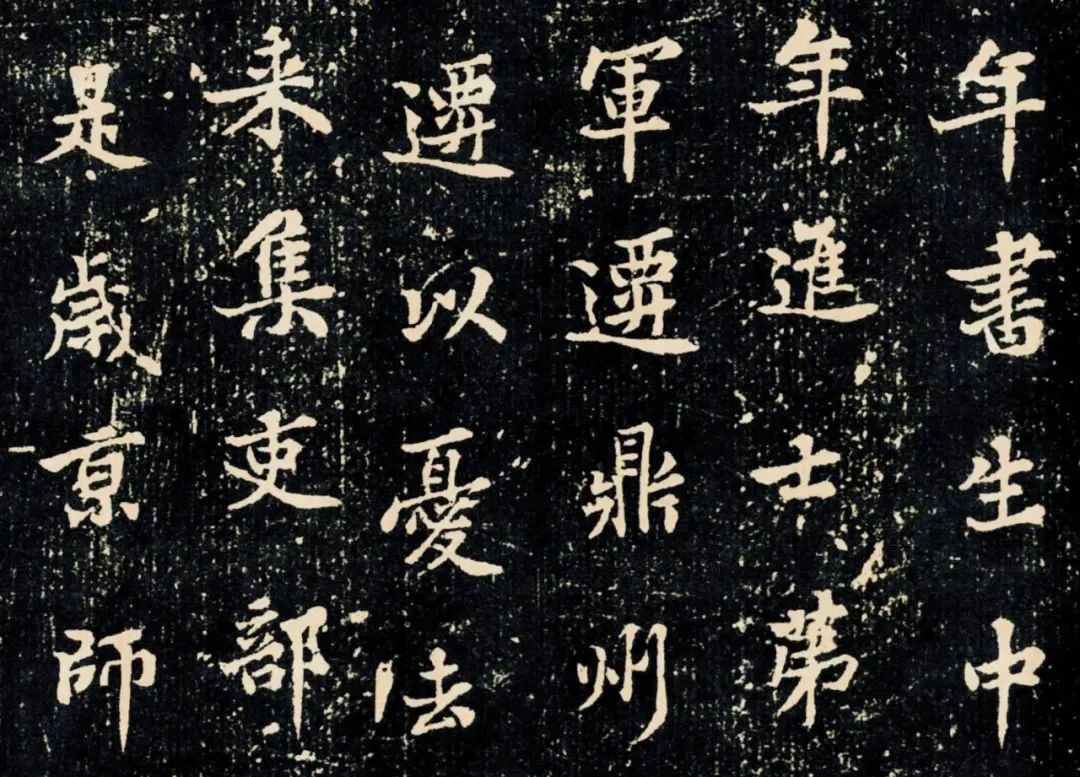 年書生中
年進士第
軍遷鼎州
遷以憂去
来集吏部
是歲京師